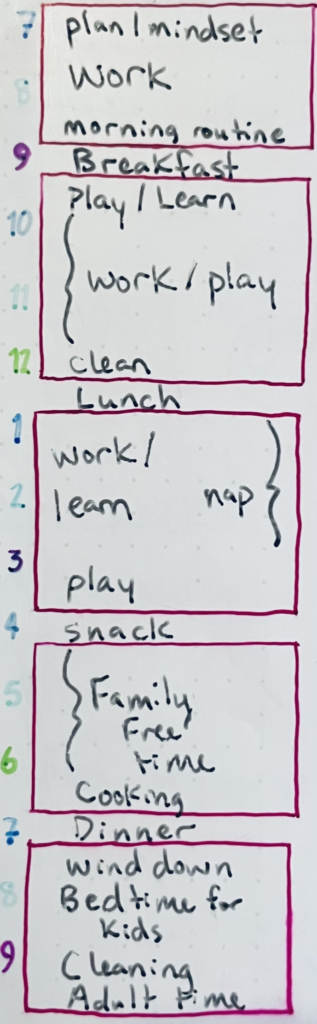 7 plan/mindset
8 Work
morning routine
9 Breakfast
Play/Learn
10
11 work/play
12 clean
Lunch
1
work/
2 learn nap
3
play
4 snack
5 Family
Free
6 time
Cooking
7 Dinner
wind down
8 Bedtime for
Kids
9 Cleaning
Adult time